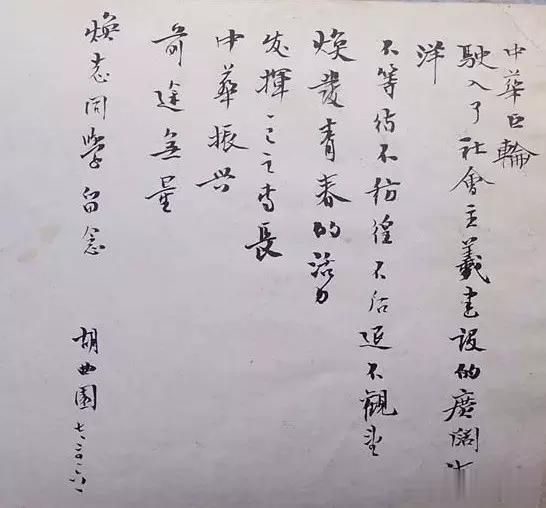 中華巨輪
駛入了社會主義建設的廣闊大
洋
不等待不彷徨不后退不觀望
煥發青春的活力
发揮一己之专長
中華振兴
前途無量
煥志同學留念
胡曲園